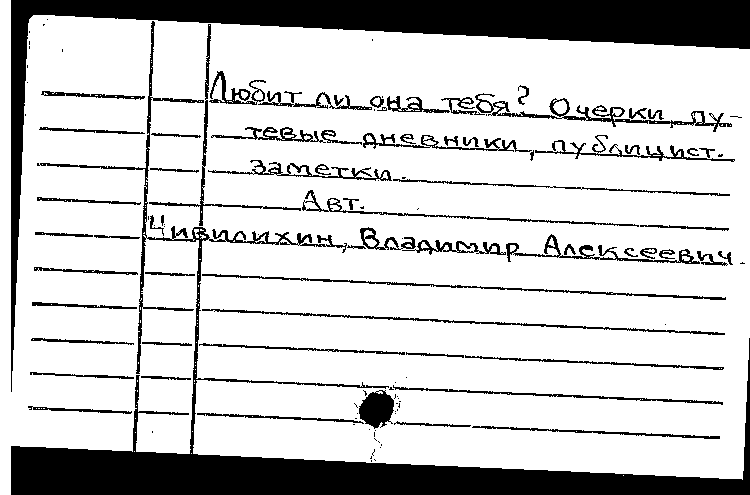 Любит ли она тебя? Очерки, пу-
тевые дневники, публицист.
заметки.
Авт.
Чивилихин, Владимир Алексеевич.